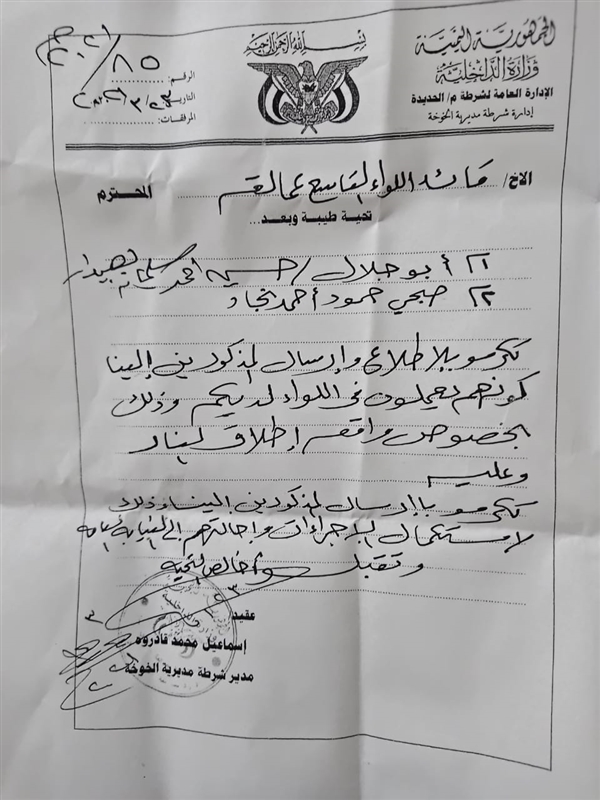 بسم الله الرحمن الرحيم
الجمهورية اليمنية
وزارة الداخلية
الإدارة العامة لشرطة م/ الحديدة
إدارة شرطة مديرية الخوخة
الرقم: ٨٥
التاريخ
المرفقات:
الاخ/ قائد اللواء التاسع عمالقه المحترم
تحية طيبة وبعد...
أبو جلال / حسين احمد سليمان
صبحي حمود أحمد نجاد
تكرمو بالإطلاع وإرسال المذكورين إلينا
كونهم يعملون في اللواء لديكم وذلك
بخصوص واقعه إطلاق النار
وعليه
تكرمو باإرسال المذكورين الينا وذلك
لإستكمال الإجراءات وإحالتهم إلى النيابة العامة
وتقبلو خالص التحيه
عقيد/
إسماعيل محمد قاذروه
مدير شرطة مديرية الخوخة